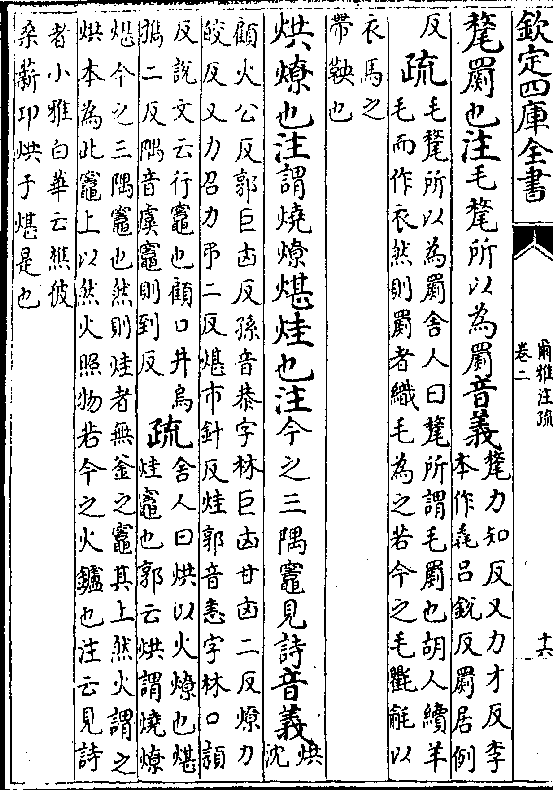 欽定四庫全書
爾雅注疏
卷二
十六
氂罽也注毛氂所以為罽音義氂力知反又力才反李
本作毳吕銳反罽居例
反疏毛氂所以為罽舍人曰氂所謂毛罽也胡人續羊
毛而作衣然則罽者織毛為之若今之毛氍毹以
衣馬之
帶鞅也
烘燎也注謂燒燎煁烓也注今之三隅竈見詩音義烘沈
顧火公反郭巨凶反孫音恭字林巨凶甘凶二反燎力
皎反又力召力弔二反煁市針反烓郭音恚字林口熲
反說文云行竈也顧口井烏
攜二反隅音虞竈則到反疏舍人曰烘以火燎也煁
烓竈也郭云烘謂燒燎
煁今之三隅竈也然則烓者無釜之竈其上然火謂之
烘本為此竈上以然火照物若今之火鑪也注云見詩
者小雅白華云樵彼
桑薪卭烘于煁是也